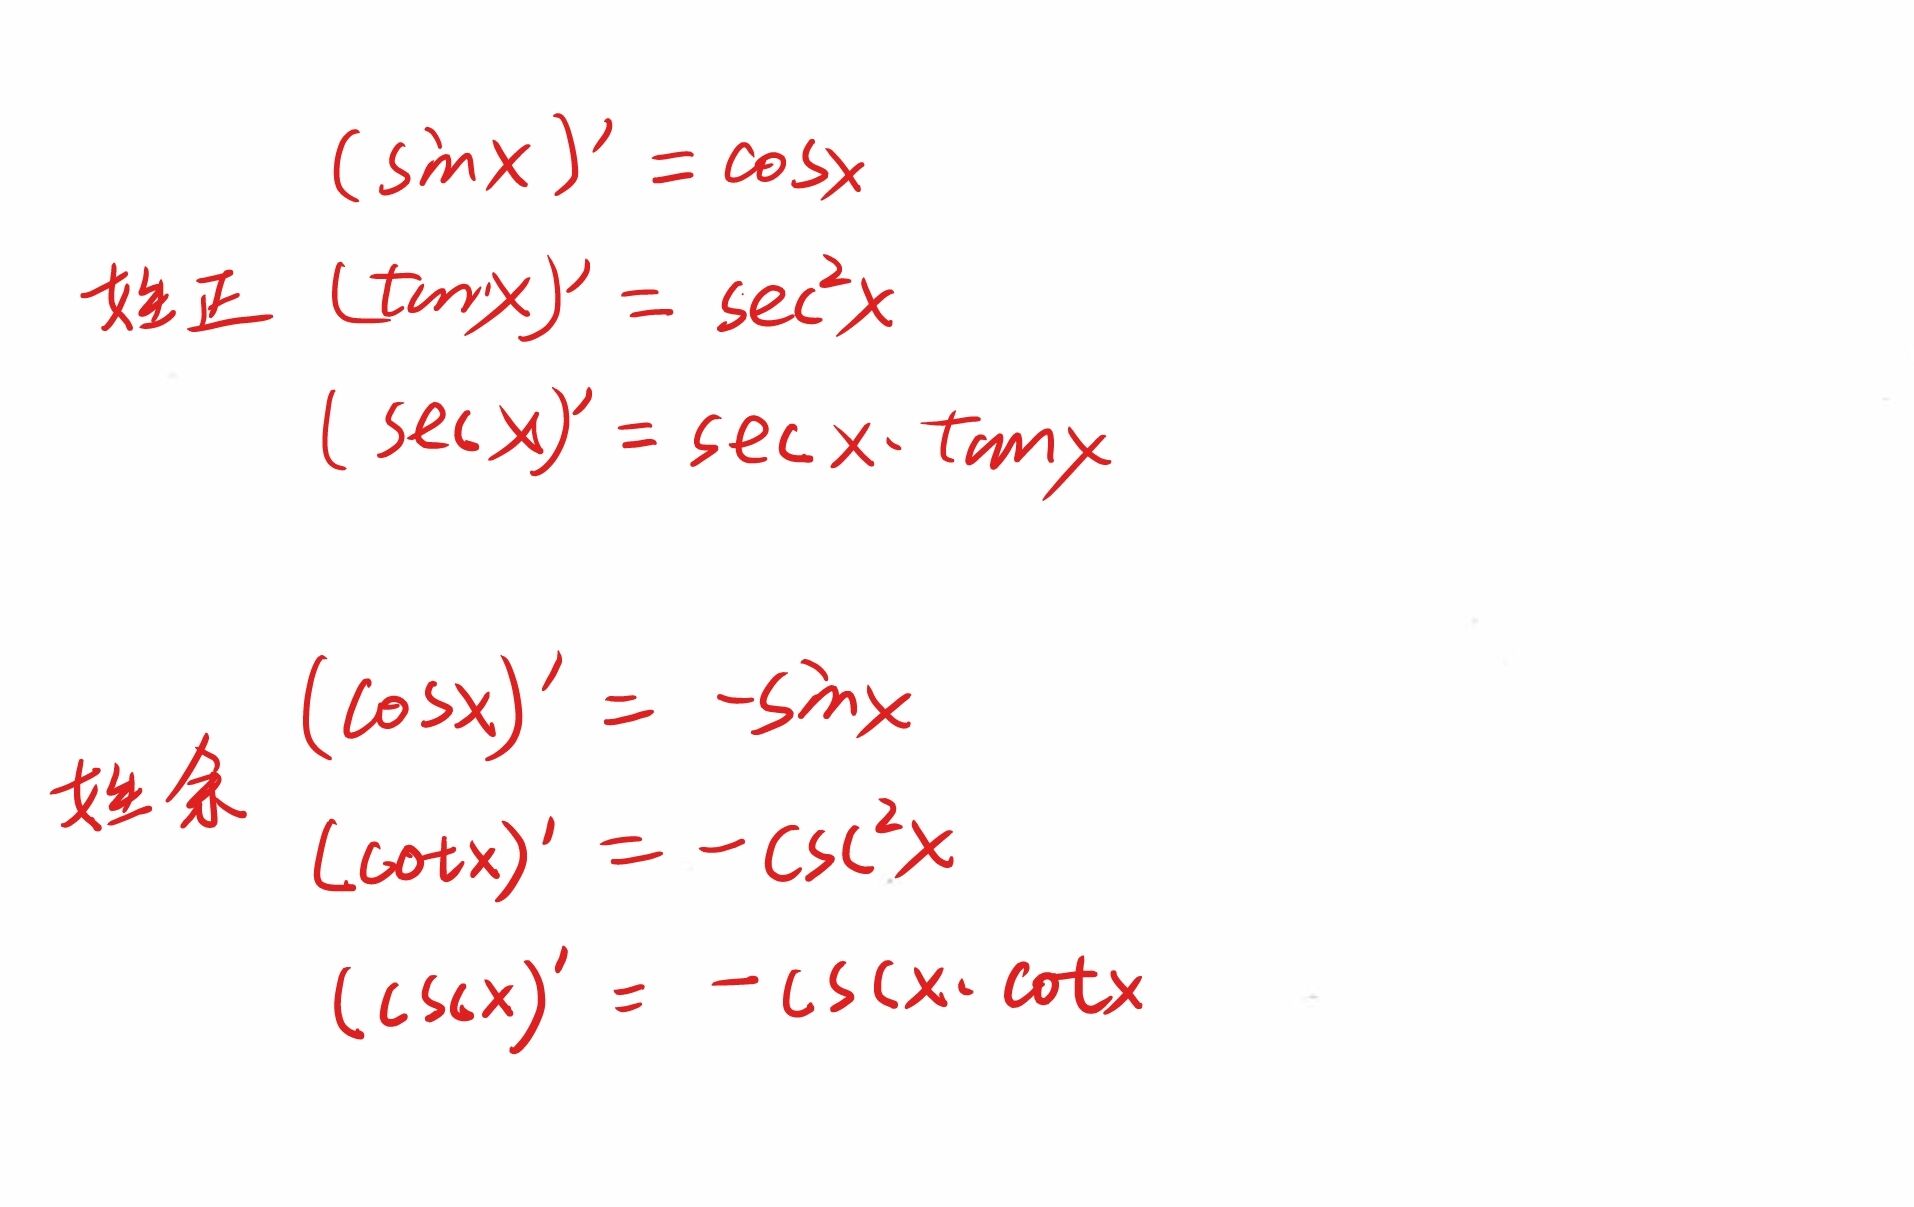 (sinx)' = cosx
姓正 (tanx)' = sec²x
(secx)' = secx·tanx
(cosx)' = -sinx
姓余
(cotx)' = -csc²x
(cscx)' = -cscx·cotx